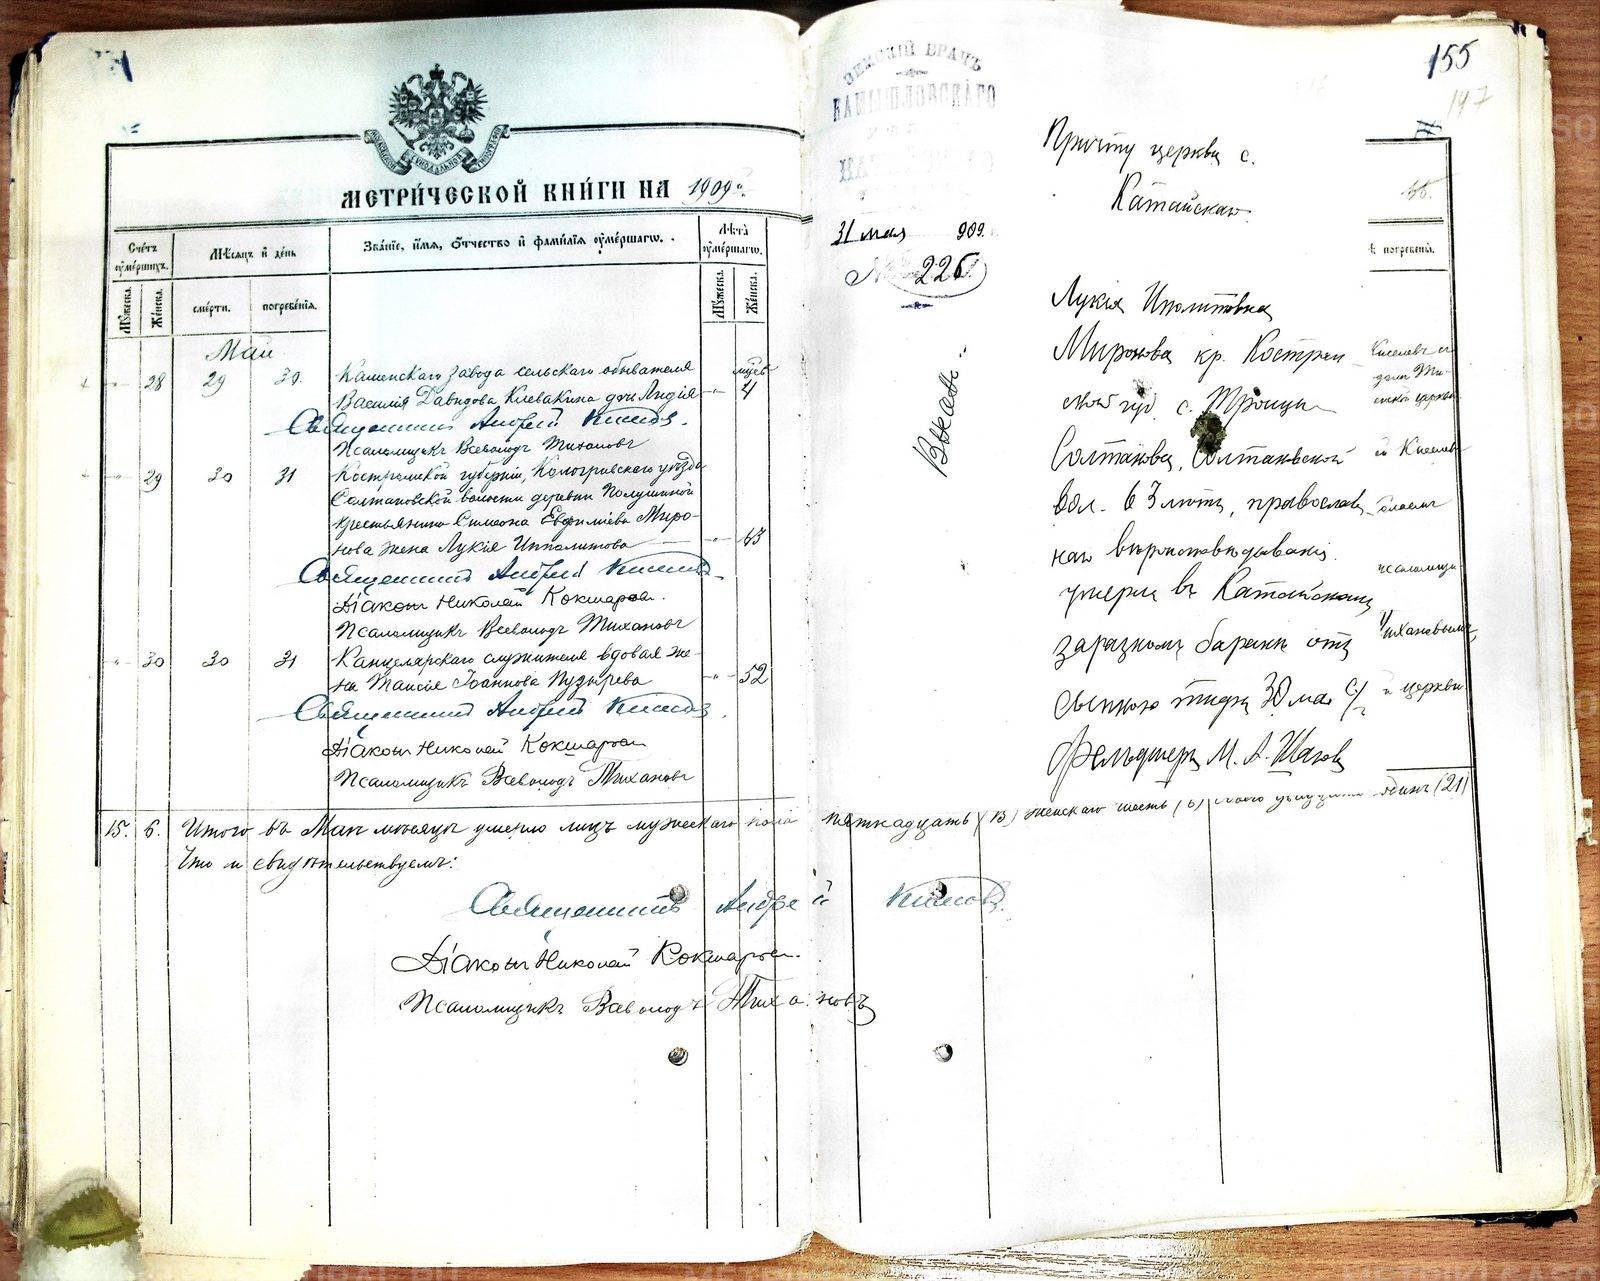 МЕТРИ́ЧЕСКОЙ КНИ́ГИ НА 1909 г.
Сче́тъ оумéршихъ.
Мѣ́сяцъ и день
Зва́нїе, и́мя, о́тчество и фами́лїя оумéршагѡ.
Лѣта̀ оумéршагѡ.
Мꙋ́жеска. Же́нска. сме́рти. погребе́нїя. Мꙋ́жеска. Же́нска.
Май
28 29 30. Каменскаго завода сельскаго обывателя мѣсяц.
Василія Давидова Клевакина дочь Лидія 4
Священникъ Андрей
Псаломщикъ Всеволодъ Тихановъ
29 30 31 Костромской губерніи, Кологривскаго уѣзда
Солтановской волости деревни Полушиной
крестьянина Симеона Евфиміева Миро-
нова жена Лукія Ипполитова 63
Священникъ Андрей
Діаконъ Николай Кокшаровъ.
Псаломщикъ Всеволодъ Тихановъ
30 30 31 Канцелярскаго служителя вдовая же-
на Таисія Іоаннова Пузырева 52
Священникъ Андрей
Діаконъ Николай Кокшаровъ
Псаломщикъ Всеволодъ Тихановъ
15. 6. Итого въ Маѣ мѣсяцѣ умерло лицъ мужескаго пола пятнадцать (15) женскаго шесть (6) всего двадцать одинъ (21)
Что и свидѣтельствуемъ:
Священникъ Андрей
Діаконъ Николай Кокшаровъ.
Псаломщикъ Всеволодъ Тихановъ
ЗЕМСКІЙ ВРАЧЪ
КАМЫШЛОВСКАГО
31 мая 909 г.
№ 226
155
147
Причту церкви с.
Катайскаго.
Лукія Иполитовна
Миронова кр. Костром-
ской губ. с. Троицы
Солтанова, Солтановской
вол. 63 лѣтъ, православ-
наго вѣроисповѣданія.
умерла въ Катайскомъ
заразномъ баракѣ отъ
сыпного тифа 30 мая с/г
Фельдшеръ М. А.
погребены.
церкви
Тихановымъ,
церкви